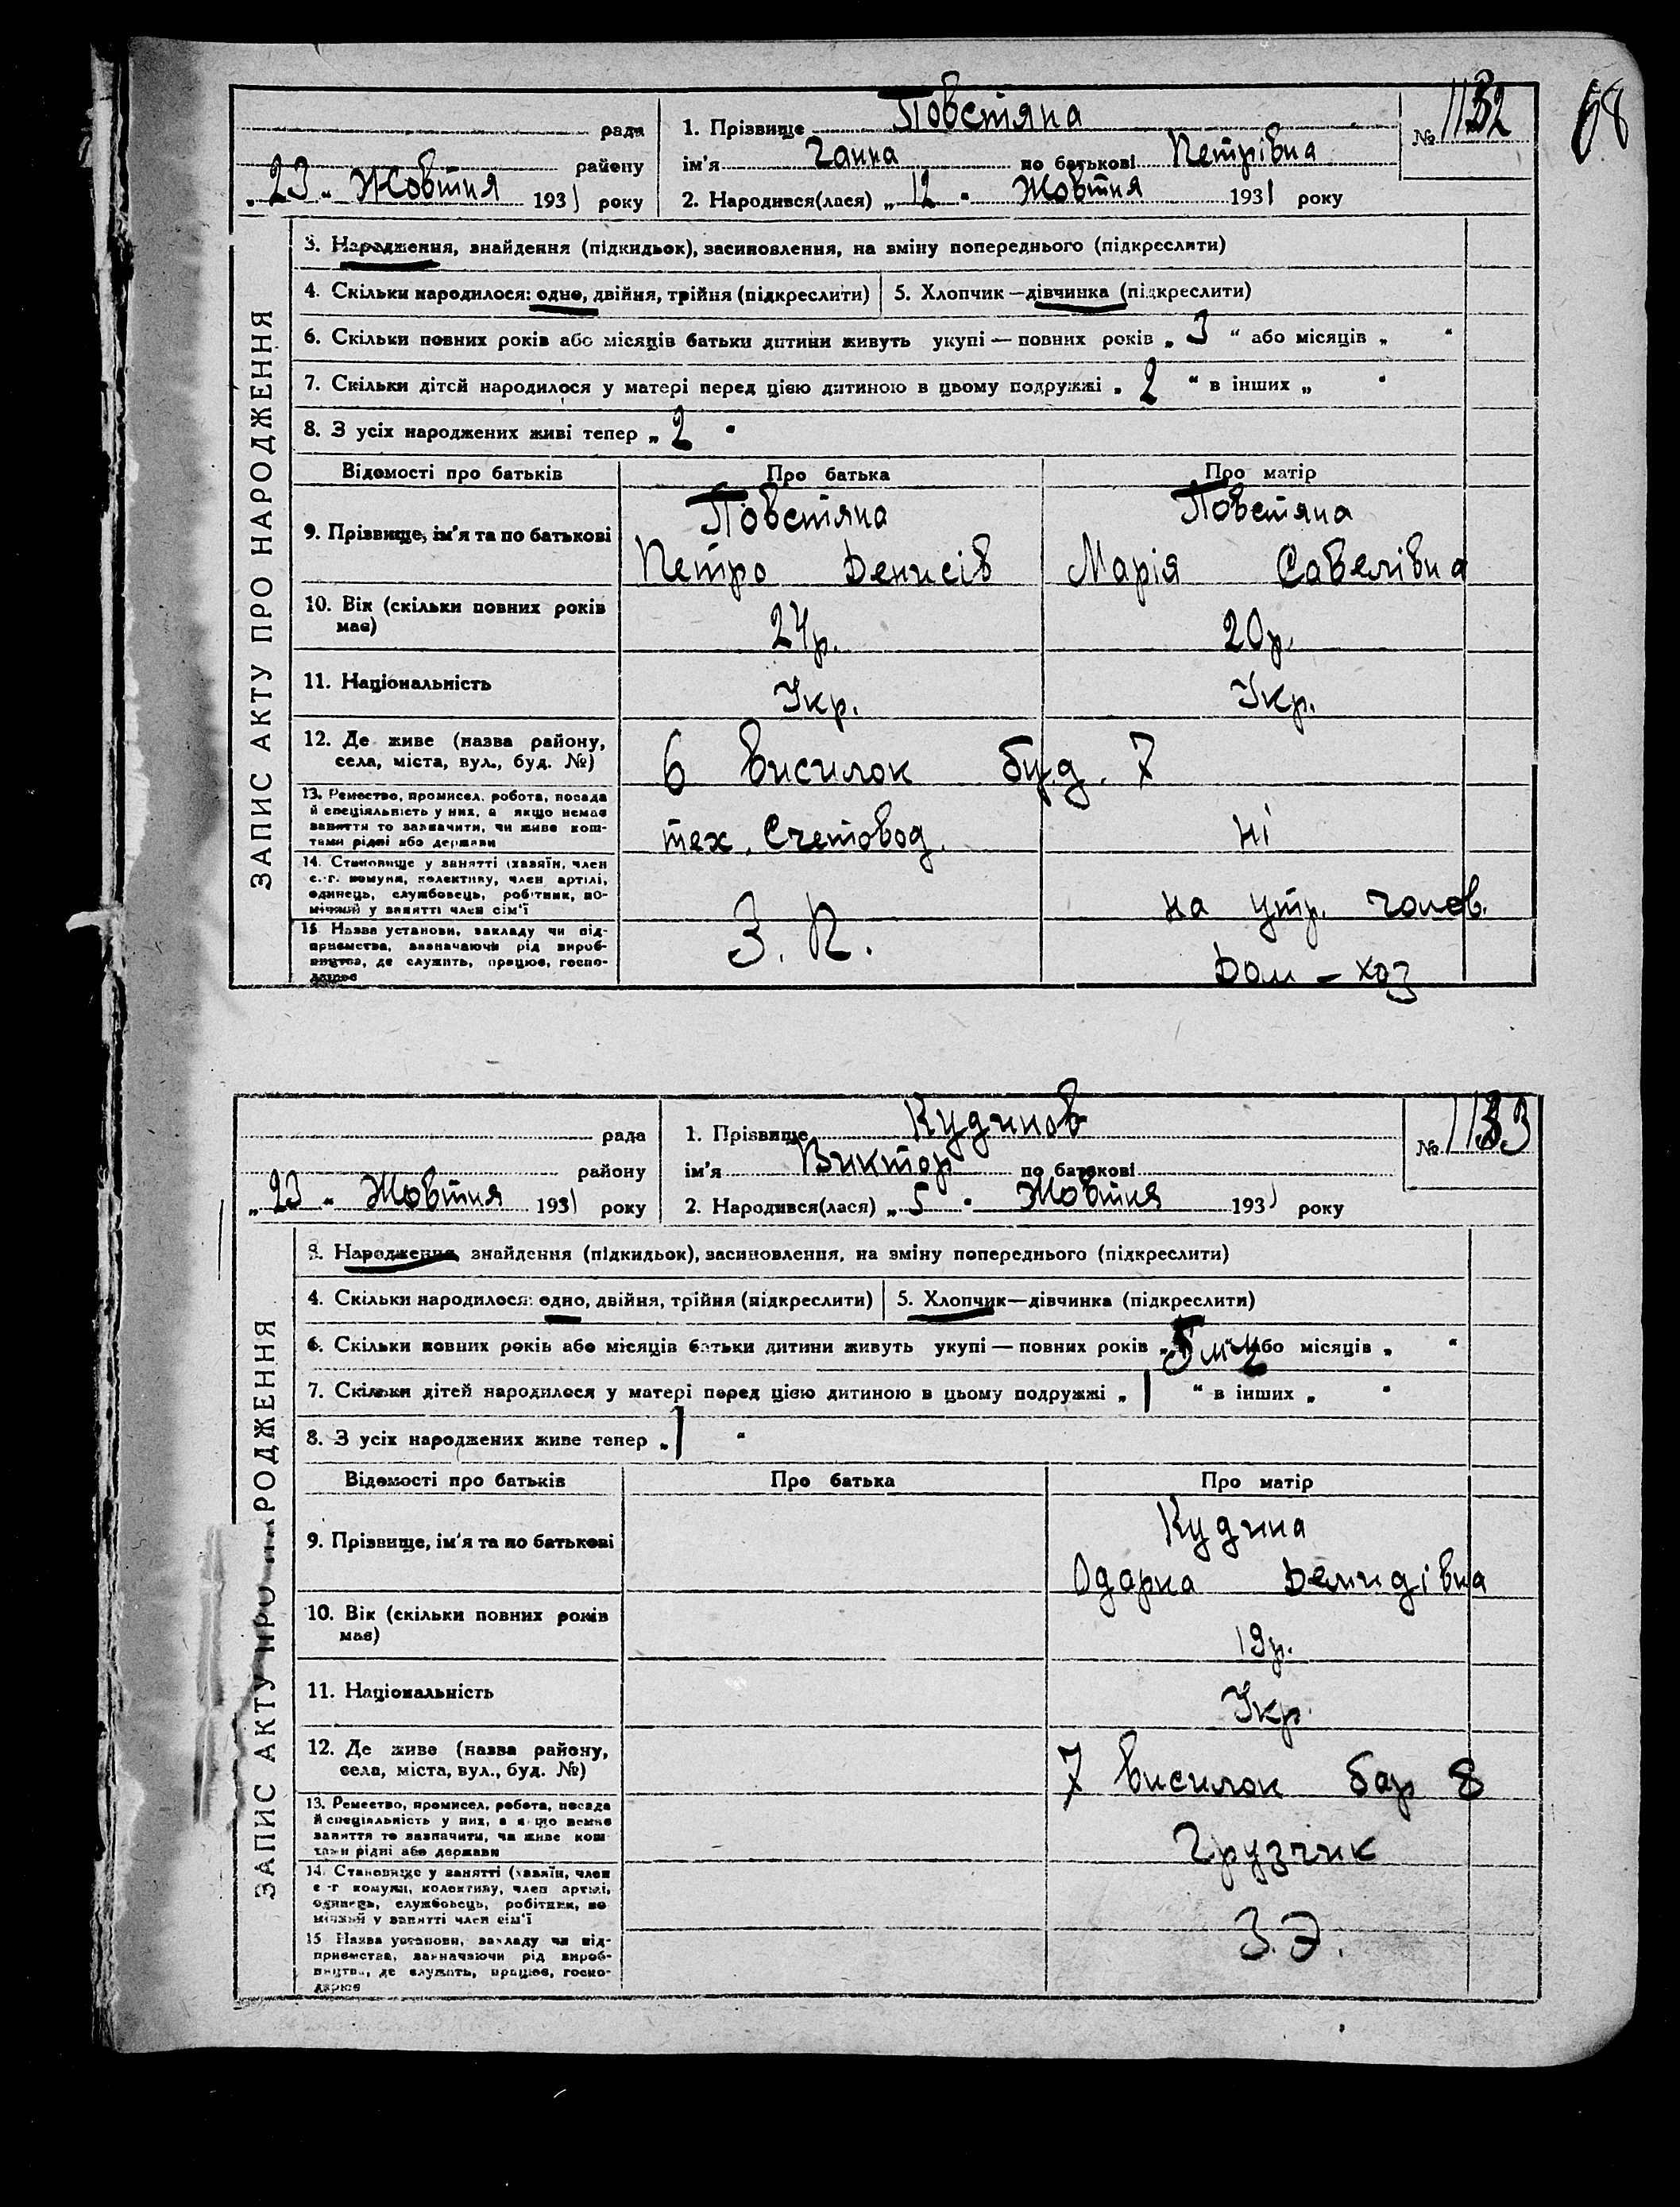 68
рада
району
„23“ Жовтня 1931 року
1. Прізвище Повстяна
ім'я Ганна по батькові Петрівна
2. Народився(лася) „12“ Жовтня 1931 року
№ 1132
ЗАПИС АКТУ ПРО НАРОДЖЕННЯ
3. Народження, знайдення (підкидьок), засиновлення, на зміну попереднього (підкреслити)
4. Скільки народилося: одно, двійня, трійня (підкреслити) 5. Хлопчик—дівчинка (підкреслити)
6. Скільки повних років або місяців батьки дитини живуть укупі — повних років „3“ або місяців „ “
7. Скільки дітей народилося у матері перед цією дитиною в цьому подружжі „2“ в інших „ “
8. З усіх народжених живі тепер „2“
Відомості про батьків Про батька Про матір
9. Прізвище, ім'я та по батькові
Повстяна
Петро Денисів
Повстяна
Марія Савелівна
10. Вік (скільки повних років
має)
24р.
20р.
11. Національність Укр. Укр.
12. Де живе (назва району,
села, міста, вул., буд. №)
6 висилок буд. 7
13. Ремество, промисел, робота, посада
й спеціяльність у них, а якщо немає
заняття то зазначити, чи живе кош-
тами рідні або держави
тех. Счетовод
ні
14. Становище у занятті (хазяїн, член
с.-г. комуни, колективу, член артілі,
одинець, службовець, робітник, по-
мічний у занятті член сім'ї
на утр. чолов.
15. Назва установи, закладу чи під-
приємства, зазначаючи рід вироб-
ництва, де служить, працює, госпо-
дарює
З. П.
Дом – хоз
рада
району
„23“ Жовтня 1931 року
1. Прізвище Кудинов
ім'я Виктор по батькові
2. Народився(лася) „5“ Жовтня 1931 року
№ 1133
ЗАПИС АКТУ ПРО НАРОДЖЕННЯ
3. Народження, знайдення (підкидьок), засиновлення, на зміну попереднього (підкреслити)
4. Скільки народилося: одно, двійня, трійня (підкреслити) 5. Хлопчик—дівчинка (підкреслити)
6. Скільки повних років або місяців батьки дитини живуть укупі — повних років „5 м-ц“ або місяців „ “
7. Скільки дітей народилося у матері перед цією дитиною в цьому подружжі „1“ в інших „ “
8. З усіх народжених живе тепер „1“
Відомості про батьків Про батька Про матір
9. Прізвище, ім'я та по батькові
Кудина
Одарка Демидівна
10. Вік (скільки повних років
має)
19р.
11. Національність Укр.
12. Де живе (назва району,
села, міста, вул., буд. №)
7 висилок бар 8
13. Ремество, промисел, робота, посада
й спеціяльність у них, а якщо немає
заняття то зазначити, чи живе кош-
тами рідні або держави
Грузчик
14. Становище у занятті (хазяїн, член
с.-г. комуни, колективу, член артілі,
одинець, службовець, робітник, по-
мічний у занятті член сім'ї
15. Назва установи, закладу чи під-
приємства, зазначаючи рід вироб-
ництва, де служить, працює, госпо-
дарює
З.Э.